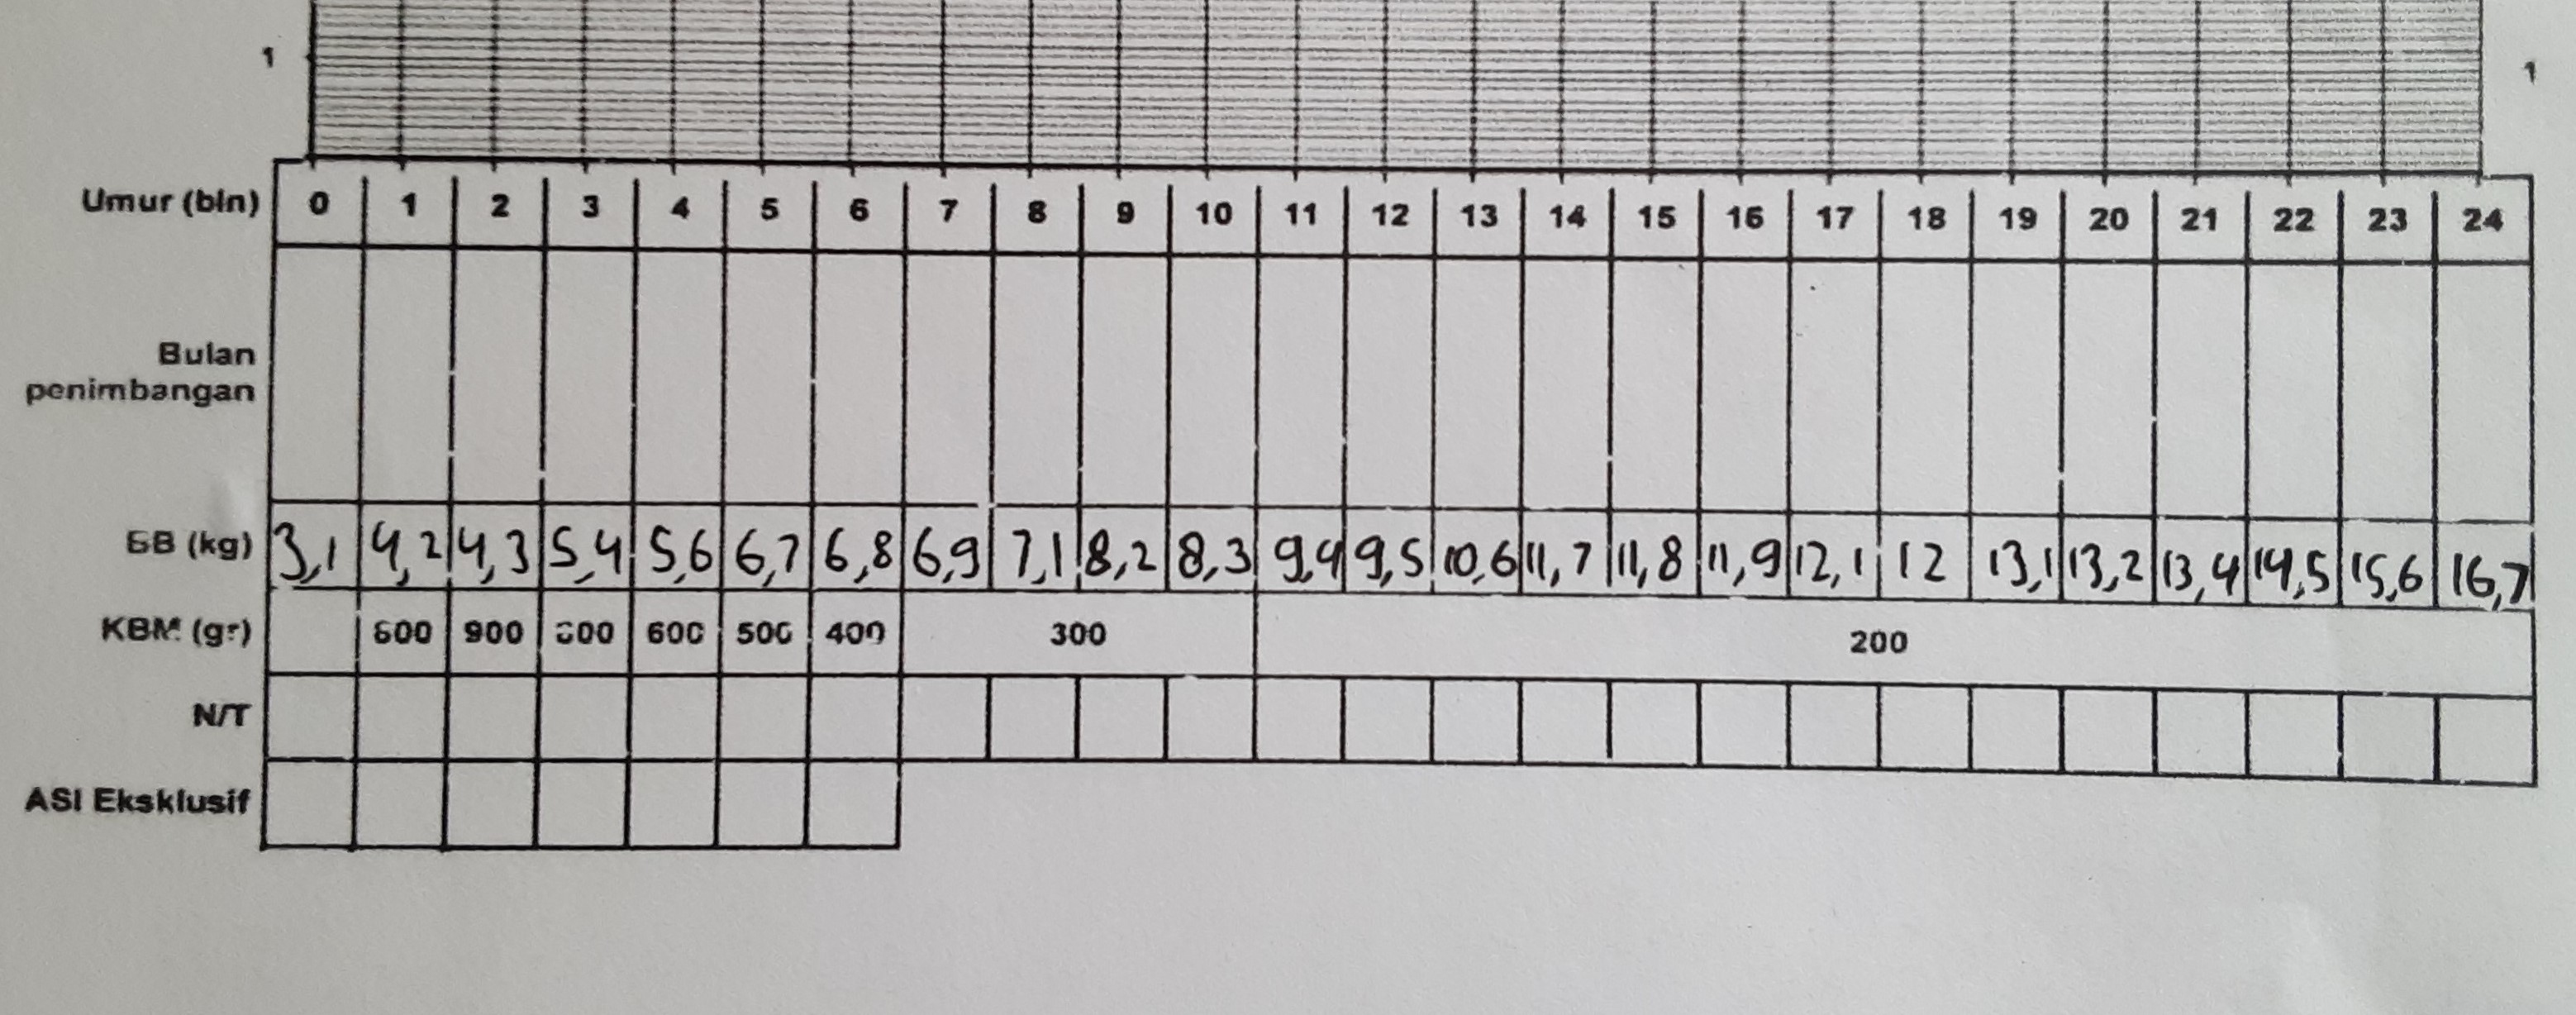 1 1
Umur (bln) 0 1 2 3 4 5 6 7 8 9 10 11 12 13 14 15 16 17 18 19 20 21 22 23 24
Bulan
penimbangan
BB (kg) 3,1 4,2 4,3 5,4 5,6 6,7 6,8 6,9 7,1 8,2 8,3 9,4 9,5 10,6 11,7 11,8 11,9 12,1 12 13,1 13,2 13,4 14,5 15,6 16,7
KBM (gr) 900 600 500 400 300 200
N/T
ASI Eksklusif